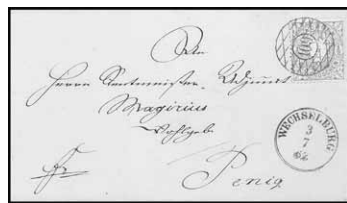 An
Herrn Rentmeister-Adjunct
Magirius
Penig
WECHSELBURG
3
7
62